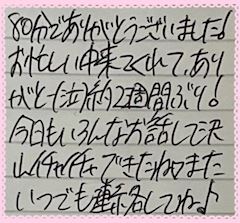 80分でありがとうございました!
お忙しい中来てくれて、あり
がとー泣 約2週間ぶり!
今日もいろんなお話して沢
山イチャイチャできたねまた
いつでも連絡してね♪